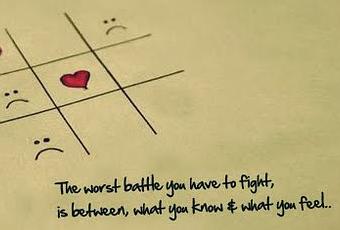 The worst battle you have to fight,
is between, what you know & what you feel..